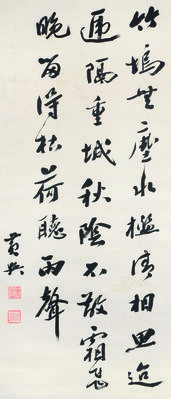 竹塢無塵水檻清相思迢
遞隔重城秋陰不散霜飛
晚留得枯荷聽雨聲
黃興